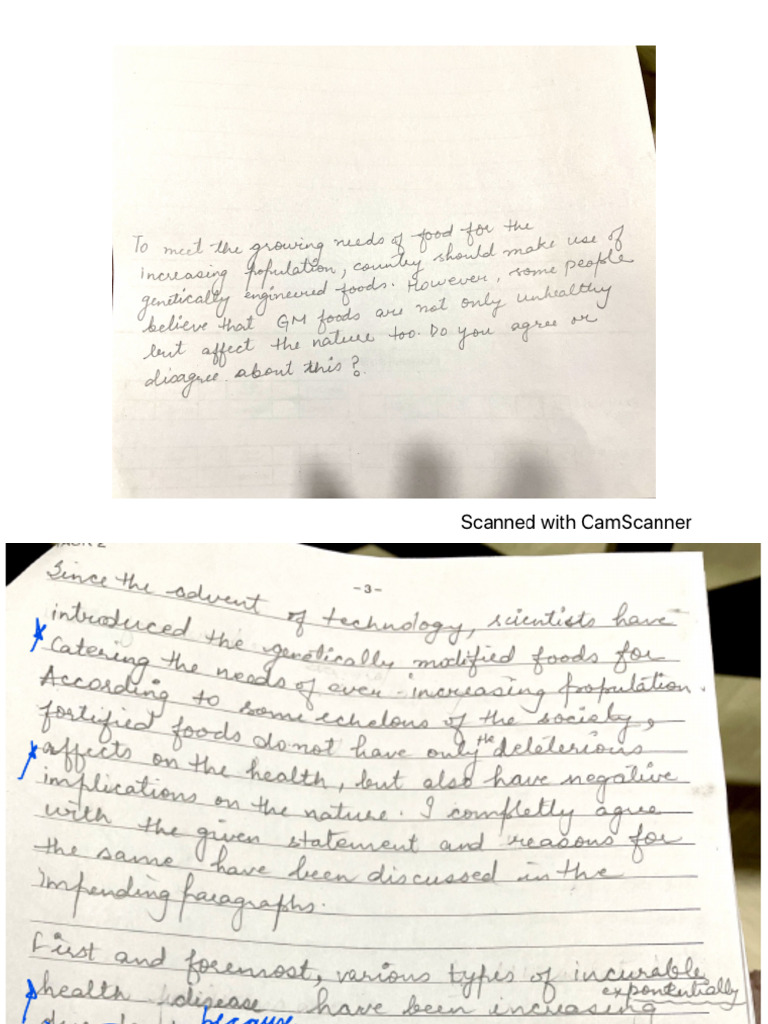 To meet the growing needs of food for the
increasing population, country should make use of
genetically engineered foods. However, some people
believe that GM foods are not only unhealthy
but affect the nature too. Do you agree or
disagree about this?
Scanned with CamScanner
TASK 2
-3-
Since the advent of technology, scientists have
introduced the genetically modified foods for
Catering the needs of ever-increasing population.
According to some echelons of the society,
fortified foods do not have only the deleterious
affects on the health, but also have negative
implications on the nature. I completly agree
with the given statement and reasons for
the same have been discussed in the
impending paragraphs.
First and foremost, various types of incurable
exponentially
health disease have been increasing
because